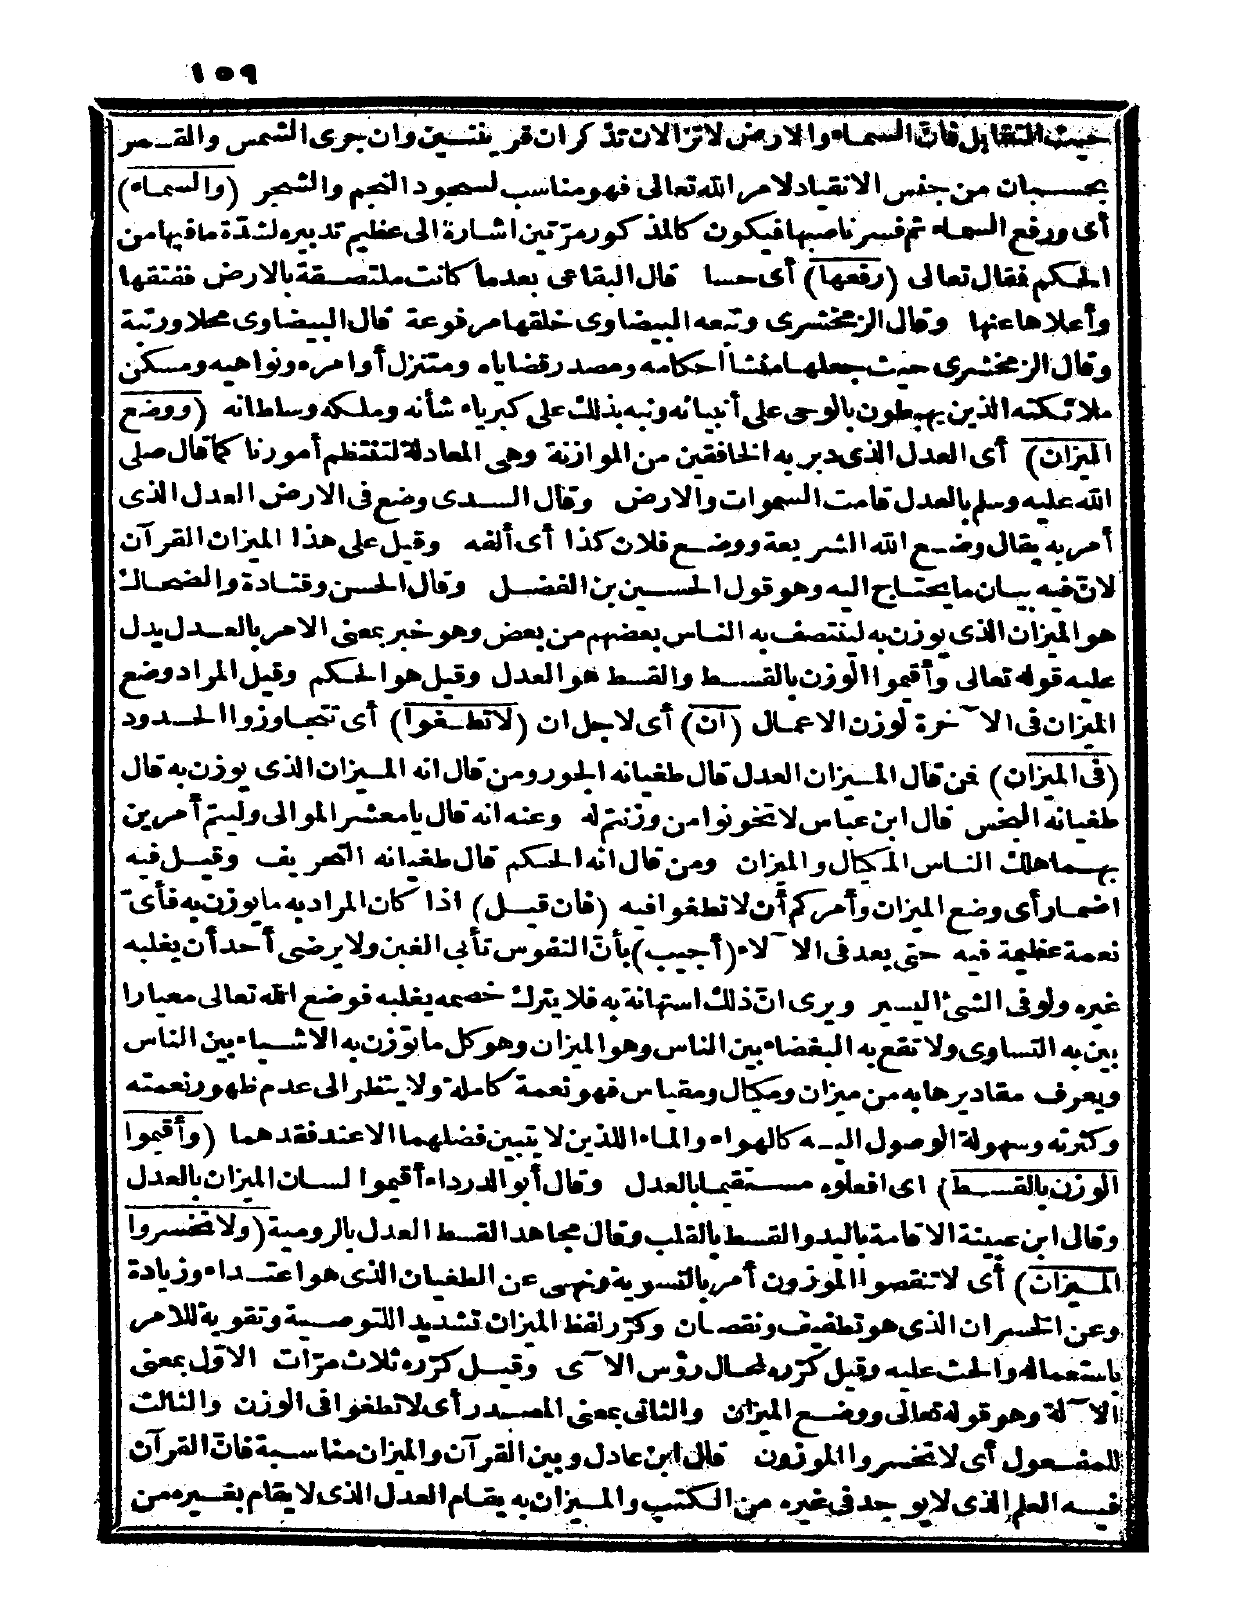 ١٥٩
حيث التقابل فانّ السماء والارض لاتزالان تذكران قرينتين وان جرى الشمس والقمر
بحسبان من جنس الانقياد لامر الله تعالى فهو مناسب لسجود النجم والشجر (والسماء)
أى ورفع السماء ثم فسر ناصبها فيكون كالمذكور مرّتين اشارة الى عظيم تدبيره لشدّة مافيها من
الحكم فقال تعالى (رفعها) أى حسا قال البقاعى بعدما كانت ملتصقة بالارض ففتقها
وأعلاها عنها وقال الزمخشرى وتبعه البيضاوى خلقها مرفوعة قال البيضاوى محلا ورتبة
وقال الزمخشرى حيث جعلها منشأ أحكامه ومصدر قضاياه ومتنزل أوامره ونواهيه ومسكن
ملائكته الذين يهبطون بالوحى على أنبيائه ونبه بذلك على كبرياء شأنه وملكه وسلطانه (ووضع
الميزان) أى العدل الذى دبر به الخافقين من الموازنة وهى المعادلة لتنتظم أمورنا كما قال صلى
الله عليه وسلم بالعدل قامت السموات والارض وقال السدى وضع فى الارض العدل الذى
أمر به يقال وضع الله الشريعة ووضع فلان كذا أى ألفه وقيل على هذا الميزان القرآن
لانّ فيه بيان ما يحتاج اليه وهو قول الحسين بن الفضل وقال الحسن وقتادة والضحاك
هو الميزان الذى يوزن به لينتصف به الناس بعضهم من بعض وهو خبر بمعنى الامر بالعدل يدل
عليه قوله تعالى وأقيموا الوزن بالقسط والقسط هو العدل وقيل هو الحكم وقيل المراد وضع
الميزان فى الآخرة لوزن الاعمال (أن) أى لاجل ان (لاتطغوا) أى تتجاوزوا الحدود
(فى الميزان) فمن قال الميزان العدل قال طغيانه الجور ومن قال انه الميزان الذى يوزن به قال
طغيانه البخس قال ابن عباس لاتخونوا من وزنتم له وعنه انه قال يا معشر الموالى وليتم أمرين
بهما هلك الناس المكيال والميزان ومن قال انه الحكم قال طغيانه التحريف وقيل فيه
اضمار أى وضع الميزان وأمركم أن لاتطغوا فيه (فان قيل) اذا كان المراد به ما يوزن به فأىّ
نعمة عظيمة فيه حتى يعد فى الآلاء (أجيب) بأنّ النفوس تأبى الغبن ولا يرضى أحد أن يغلبه
غيره ولو فى الشئ اليسير ويرى انّ ذلك استهانة به فلا يترك خصمه يغلبه فوضع الله تعالى معيارا
بين به التساوى ولا تقع به البغضاء بين الناس وهو الميزان وهو كل ما توزن به الاشياء بين الناس
ويعرف مقاديرها به من ميزان ومكيال ومقياس فهو نعمة كاملة ولا ينظر الى عدم ظهور نعمته
وكثرته وسهولة الوصول اليه كالهواء والماء اللذين لا يتبين فضلهما الا عند فقدهما (وأقيموا
الوزن بالقسط) اى افعلوه مستقيما بالعدل وقال أبو الدرداء أقيموا لسان الميزان بالعدل
وقال ابن عيينة الاقامة باليد والقسط بالقلب وقال مجاهد القسط العدل بالرومية (ولا تخسروا
الميزان) أى لا تنقصوا الموزون أمر بالتسوية ونهى عن الطغيان الذى هو اعتداء وزيادة
وعن الخسران الذى هو تطفيف ونقصان وكرّر لفظ الميزان تشديد اللتوصية وتقوية للامر
باستعماله والحث عليه وقيل كرّره لمحال رؤس الآى وقيل كرّره ثلاث مرّات الاوّل بمعنى
الآلة وهو قوله تعالى ووضع الميزان والثانى بمعنى المصدر أى لا تطغوا فى الوزن والثالث
للمفعول أى لا تخسروا الموزون قال ابن عادل وبين القرآن والميزان مناسبة فانّ القرآن
فيه العلم الذى لا يوجد فى غيره من الكتب والميزان به يقام العدل الذى لا يقام بغيره من